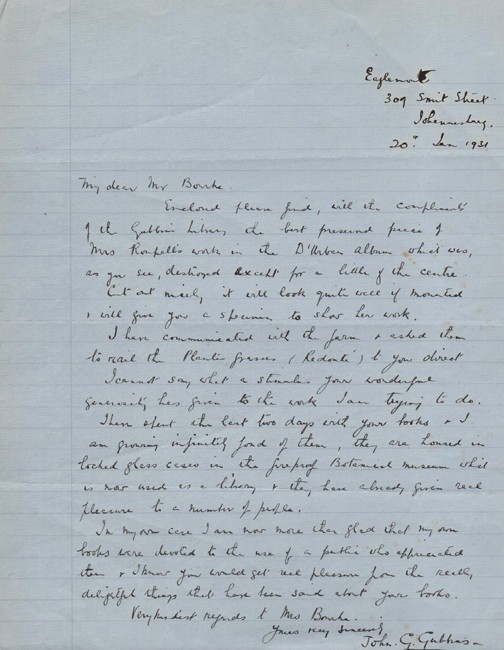 309 Smit Street
Johannesburg.
20th Jan 1931
My dear Mr Bourke.
Enclosed please find, with the compliments
of the Gubbins Library the best preserved piece of
Mrs Roupell's work in the D'Urban Album which was,
as you see, destroyed except for a little of the centre.
Cut out nicely it will look quite well if mounted
& will give you a specimen to show her work.
I have communicated with the farm & asked them
to mail the Plantes grasses (Redouté) to you direct
I cannot say what a stimulus your wonderful
generosity has given to the work I am trying to do.
I have spent the last two days with your books & I
am growing infinitely fond of them, they are housed in
locked glass cases in the fireproof Botanical museum which
is now used as a library & they have already given real
pleasure to a number of people.
In my own case I am now more than glad that my own
books were devoted to the use of a public who appreciated
them & I know you would get real pleasure from the really
delightful things that have been said about your books.
Very kindest regards to Mrs Bourke.
Yours very sincerely
John. G. Gubbins